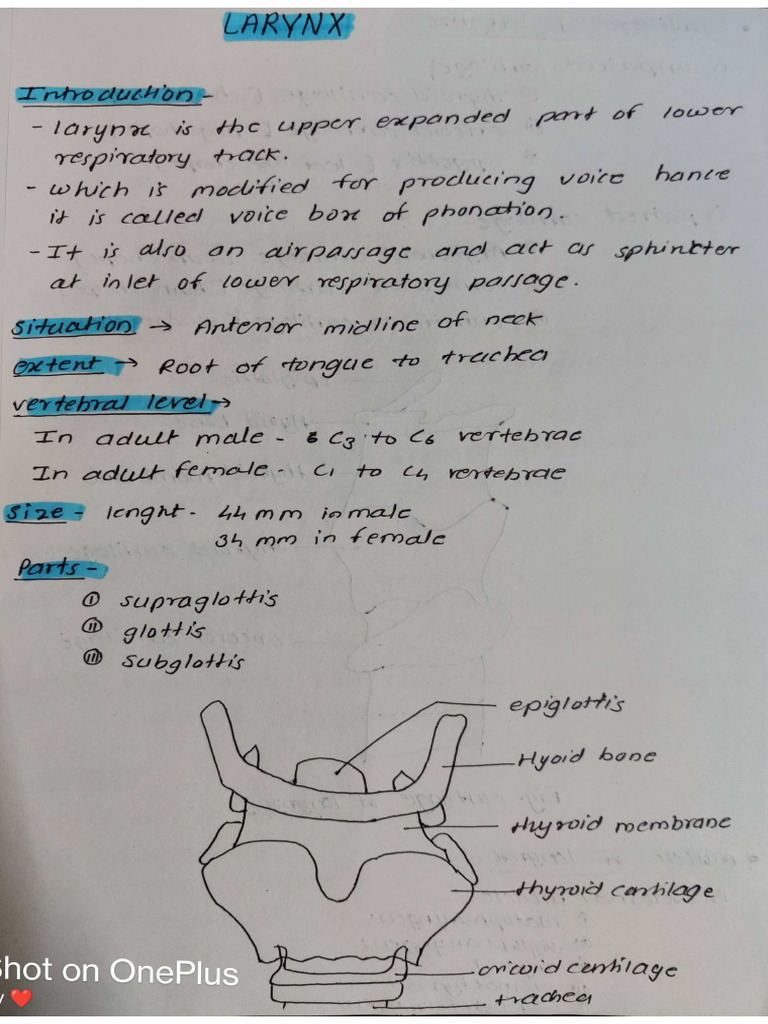 LARYNX
Introduction -
- larynx is the upper expanded part of lower
respiratory track.
- which is modified for producing voice hance
it is called voice box of phonation.
- It is also an airpassage and act as sphinkter
at inlet of lower respiratory passage.
situation → Anterior midline of neck
extent → Root of tongue to trachea
vertebral level →
In adult male - C3 to C6 vertebrae
In adult female - C1 to C4 vertebrae
size - lenght - 44 mm in male
34 mm in female
Parts -
(i) supraglottis
(ii) glottis
(iii) subglottis
epiglottis
Hyoid bone
thyroid membrane
thyroid cartilage
cricoid cartilage
trachea
Shot on OnePlus